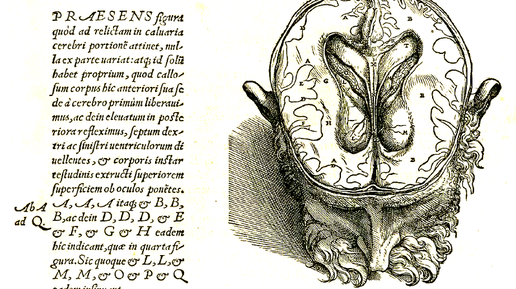 PRAESENS figura
quòd ad relictam in caluaria
cerebri portionẽ attinet, nul-
la ex parte uariat: atq; id solũ
habet proprium, quod callo-
sum corpus hic anteriori sua se
de à cerebro primùm liberaui-
mus, ac dein eleuatum in poste
riora refleximus, septum dex-
tri ac sinistri uentriculorum di
uellentes, & corporis instar
testudinis extructi superiorem
superficiem ob oculos ponẽtes.
Ab A A, A, A itaq; & B, B,
ad Q. B, ac dein D, D, D, & E
& F, & G & H eadem
hic indicant, quæ in quarta fi-
gura. Sic quoque & L, L, &
M, M, & O & P & Q
B
A
G
B
H
B